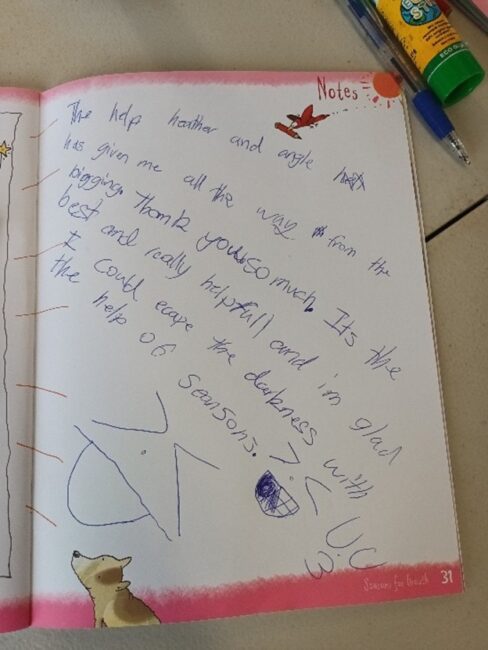 Notes
The help heather and angle
has given me all the way from the
bigging. Thank you so much. Its the
best and really helpfull and i'm glad
I could ecape the darkness with
the help of seansons.
Seasons for Growth 31